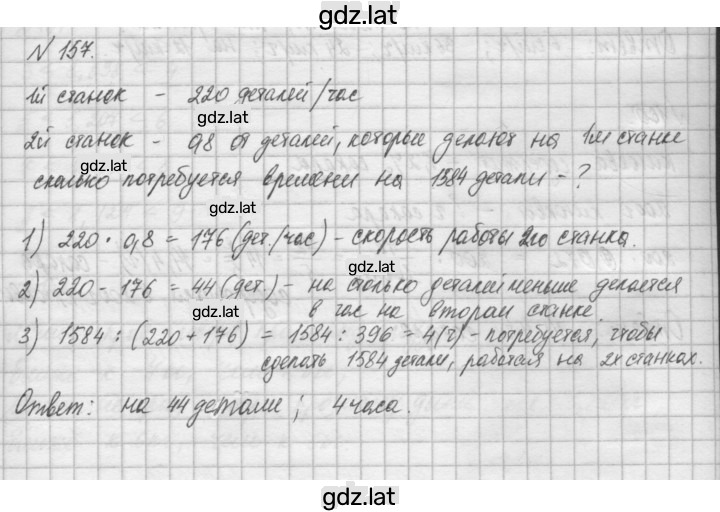 gdz.lat
N 157.
1й станок - 220 деталей/час
gdz.lat
2й станок - 0,8 от деталей, которые делают на 1м станке
сколько потребуется времени на 1584 детали - ?
gdz.lat gdz.lat
1) 220 · 0,8 = 176 (дет./час) - скорость работы 2го станка.
gdz.lat
2) 220 - 176 = 44 (дет.) - на столько деталей меньше делается
в час на втором станке.
gdz.lat gdz.lat
3) 1584 : (220 + 176) = 1584 : 396 = 4 (ч) - потребуется, чтобы
сделать 1584 детали, работая на 2х станках.
gdz.lat
Ответ: на 44 детали; 4 часа.
gdz.lat
gdz.lat